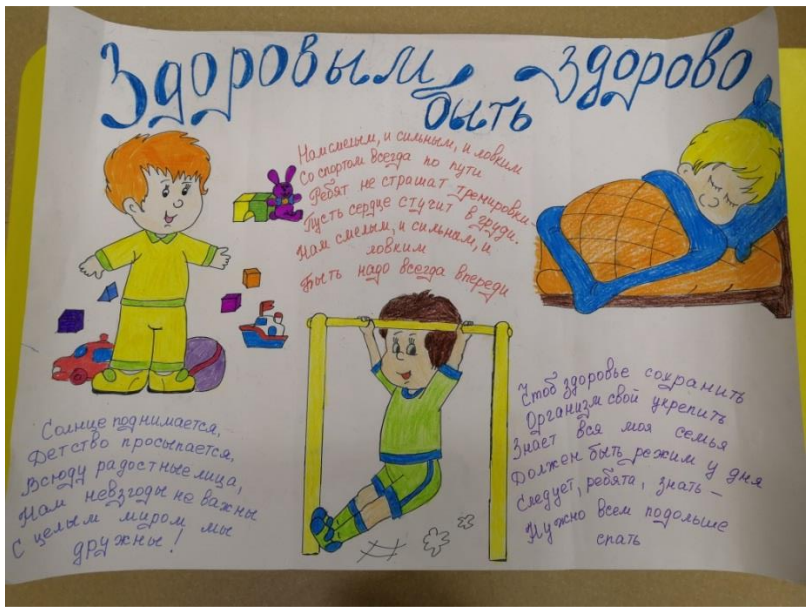 Здоровым быть здорово
Нам смелым, и сильным, и ловким
Со спортом всегда по пути
Ребят не страшат тренировки
Пусть сердце стучит в груди.
Нам смелым, и сильным, и
ловким
Быть надо всегда впереди
Солнце поднимается,
Детство просыпается,
Всюду радостные лица,
Нам невзгоды не важны
С целым миром мы
дружны!
Чтоб здоровье сохранить
Организм свой укрепить
Знает вся моя семья
Должен быть режим у дня
Следует, ребята, знать –
Нужно всем подольше
спать